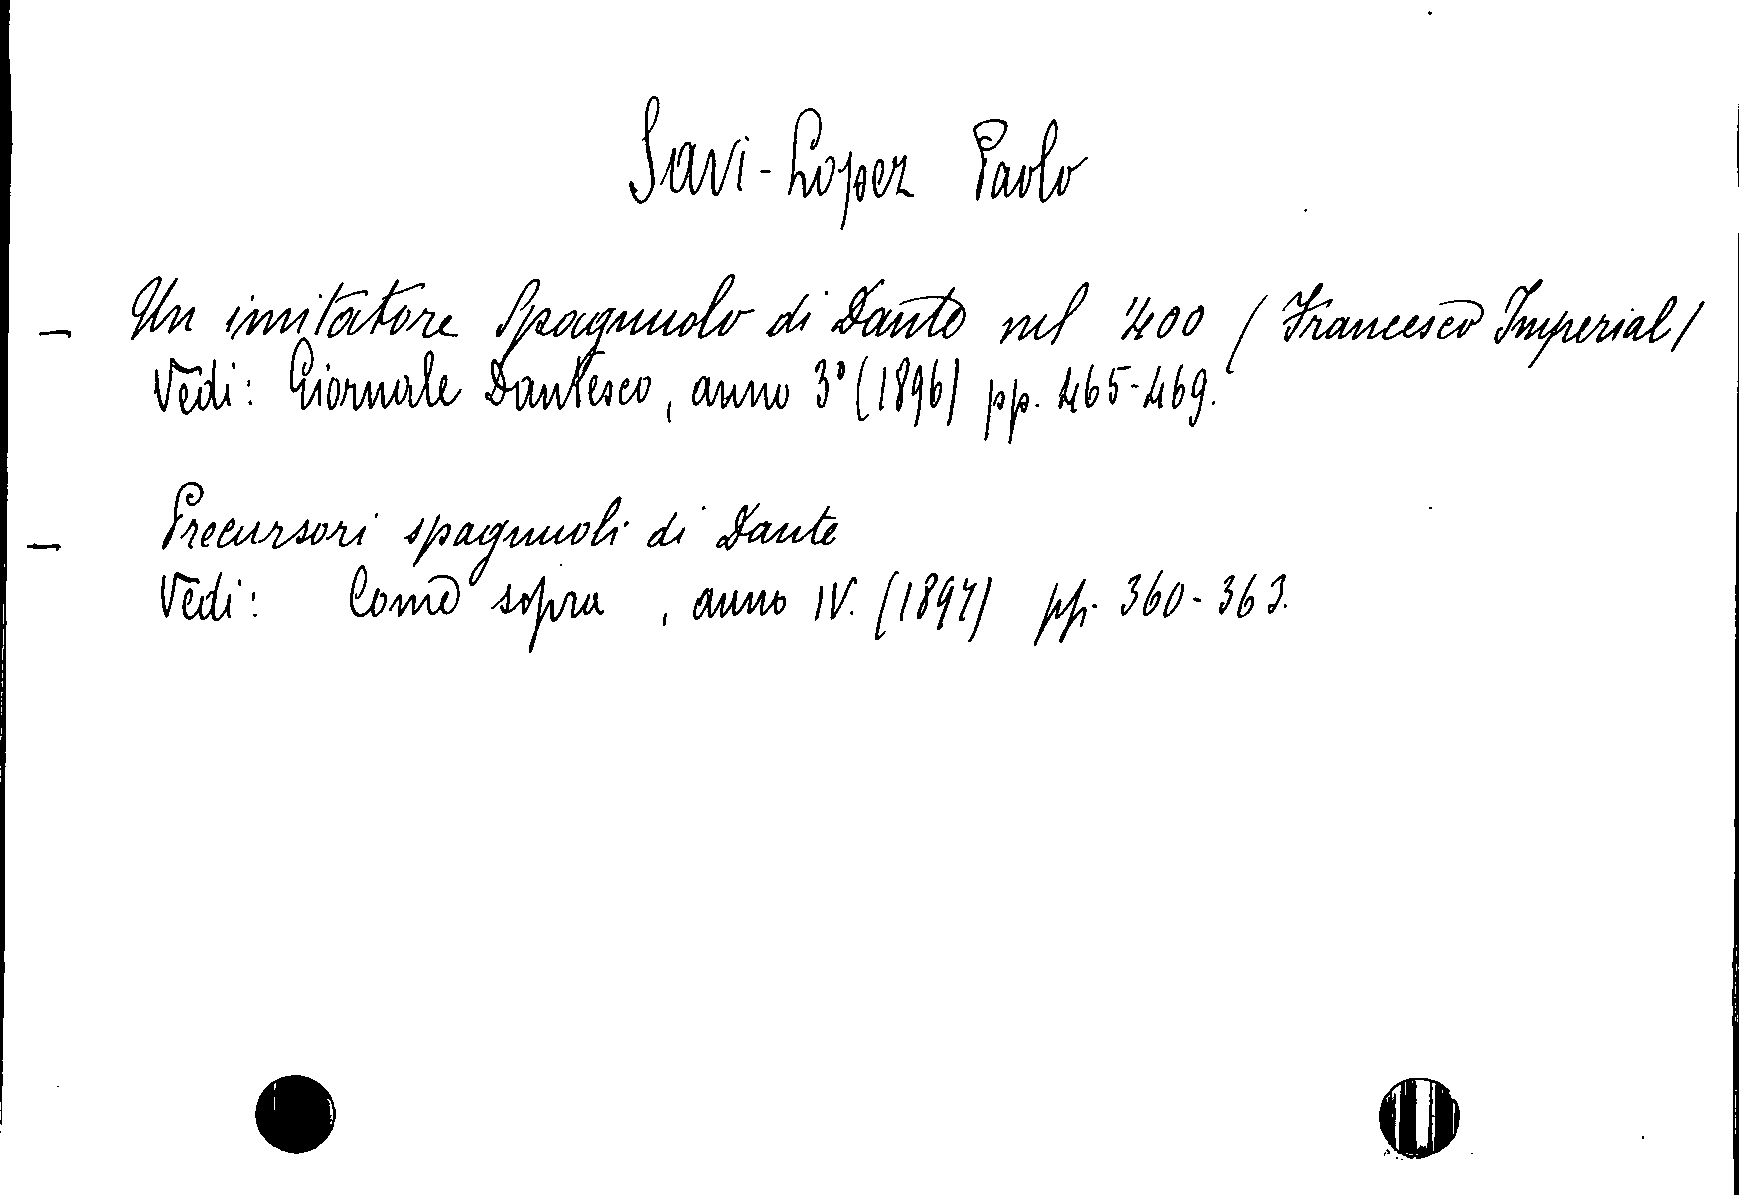 Savi-Lopez Paolo
- Un imitatore Spagnuolo di Dante nel '400 (Francesco Imperial)
Vedi: Giornale Dantesco, anno 3° (1896) pp. 465-469.
- Precursori spagnuoli di Dante
Vedi: Come sopra, anno IV. (1897) pp. 360-363.